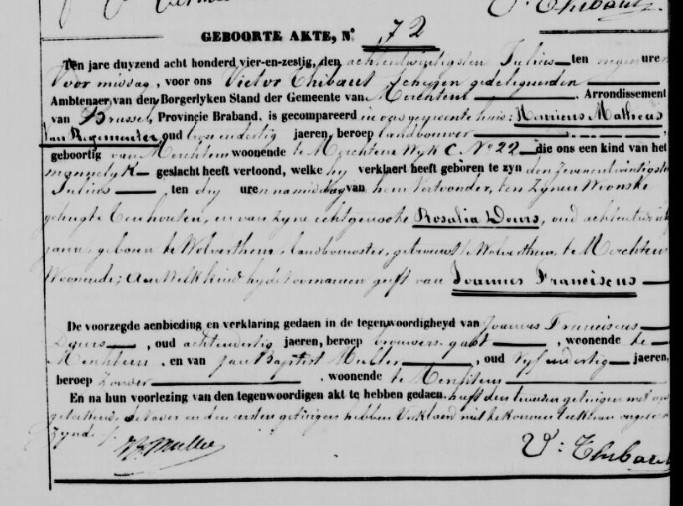 V: Thibaut
GEBOORTE AKTE, N.r 72
Ten jare duyzend acht honderd vier-en-zestig, den achtentwintigsten Julius ten negen ure
Voor middag, voor ons Victor Thibaut Schepen gedelegueerden
Ambtenaer van den Borgerlyken Stand der Gemeente van Merchtem, Arrondissement
van Brussel, Provincie Braband, is gecompareerd in ons gemeente huis: Henricus Matheus
Van Regemeuter, oud en dertig jaeren, beroep landbouwer
geboortig van Merchtem woonende te Merchtem Wyk C. No 22 die ons een kind van het
mannelyk geslacht heeft vertoond, welke hy verklaert heeft geboren te zyn den zevenentwintigsten
Julius, ten dry uren namiddag van hem Vertoonder, ten zynen Woonste
gehugte Tenhouten, en van zyne echtgenoote Rosalia Dours, oud achtentwintig
jaren, geboren te Wolverthem, landbouwster, gehuwd te Wolverthem, te Merchtem
Woonende; Aan Welk kind hy de Voornamen geeft van Joannes Franciscus
De voorzegde aenbieding en verklaring gedaen in de tegenwoordigheyd van Joannes Franciscus
, oud achtendertig jaeren, beroep brouwers gast, woonende te
Merchtem, en van Jan Baptist Muller, oud vyfendertig jaeren,
beroep, woonende te Merchtem
En na hun voorlezing van den tegenwoordigen akt te hebben gedaen, heeft den tweeden getuigen met ons
geteekend, de Vader en den eersten getuigen hebben Verklaerd niet te konnen teekenen
zynde
V: Thibaut